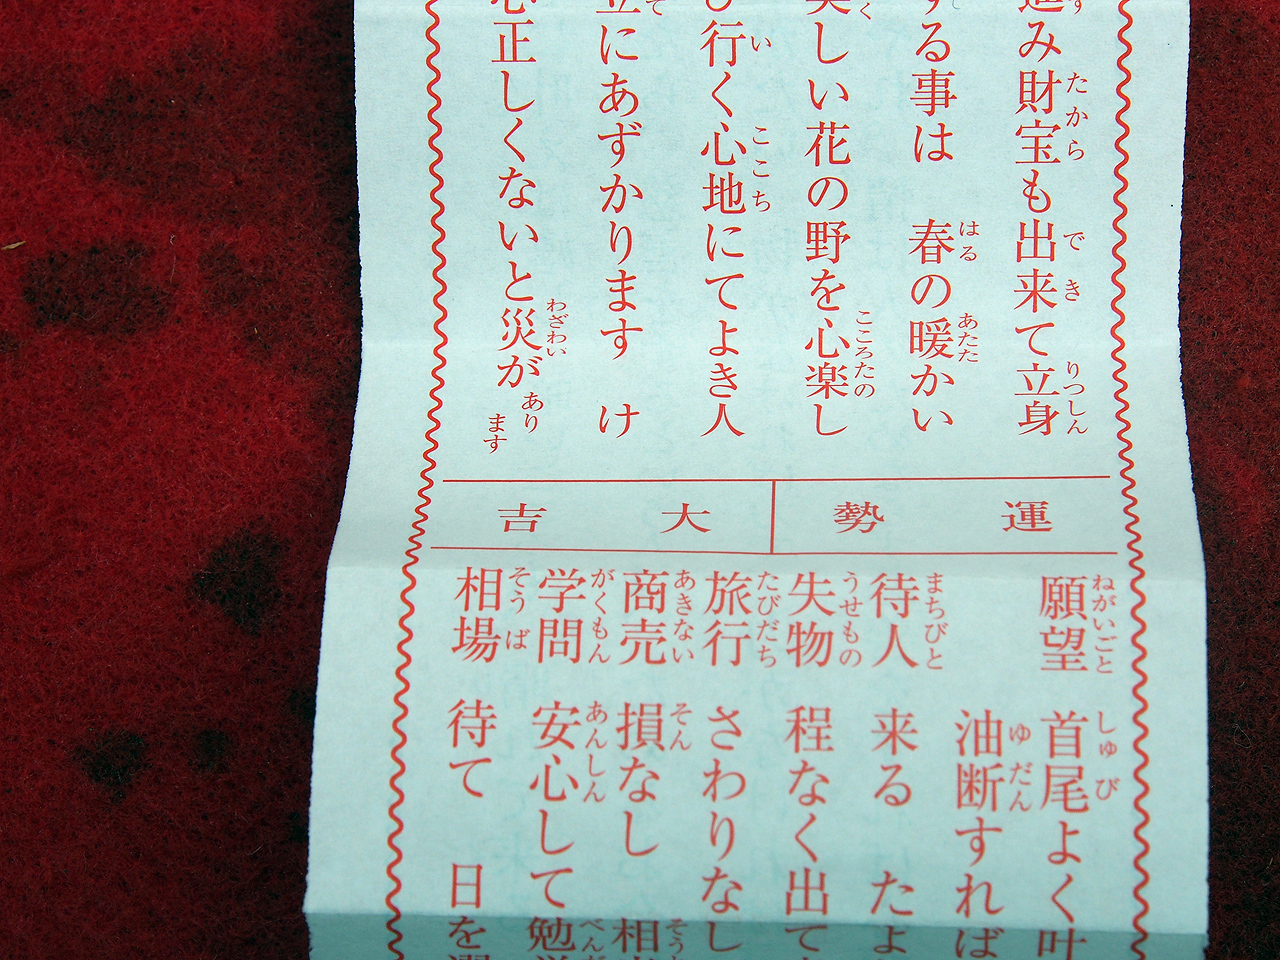 み財宝も出来て立身
る事は 春の暖かい
しい花の野を心楽し
行く心地にてよき人
にあずかります け
正しくないと災があります
運勢 大吉
願望 首尾よく叶
油断すれば
待人 来る たよ
失物 程なく出て
旅行 さわりなし
商売 損なし 相
学問 安心して勉
相場 待て 日を